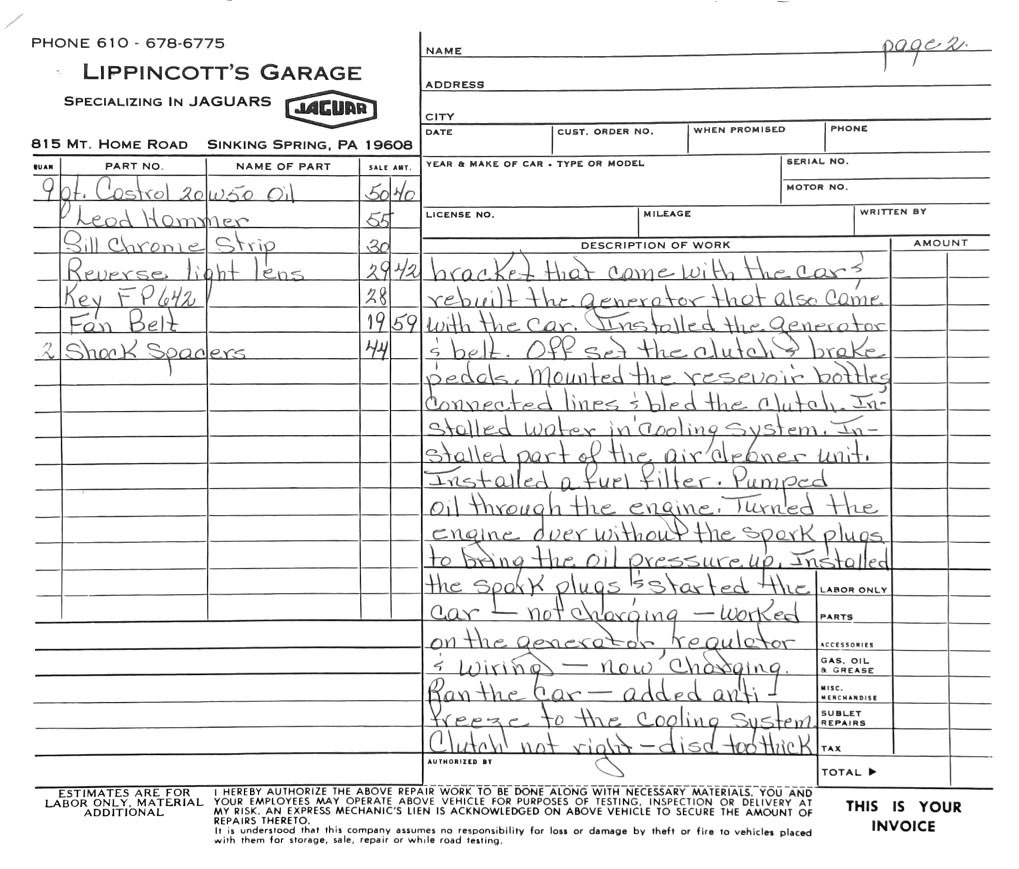 PHONE 610 - 678-6775
LIPPINCOTT'S GARAGE
SPECIALIZING IN JAGUARS
JAGUAR
815 MT. HOME ROAD SINKING SPRING, PA 19608
page 2.
NAME
ADDRESS
CITY
DATE CUST. ORDER NO. WHEN PROMISED PHONE
YEAR & MAKE OF CAR - TYPE OR MODEL SERIAL NO.
MOTOR NO.
LICENSE NO. MILEAGE WRITTEN BY
QUAN PART NO. NAME OF PART SALE AMT.
9 qt. Castrol 20W50 Oil 50 40
Lead Hammer 55
Sill Chrome Strip 30
Reverse light lens 29 42
Key FP642 28
Fan Belt 19 59
2 Shock Spacers 44
DESCRIPTION OF WORK AMOUNT
bracket that came with the car &
rebuilt the generator that also came
with the car. Installed the generator
& belt. Off set the clutch & brake
pedals. Mounted the resevoir bottles
connected lines & bled the clutch. In-
stalled water in cooling system. In-
stalled part of the air cleaner unit.
Installed a fuel filter. Pumped
oil through the engine. Turned the
engine over without the spark plugs
to bring the oil pressure up. Installed
the spark plugs & started the
car — not charging — worked
on the generator, regulator
& wiring — now charging.
Ran the car — added anti-
freeze to the cooling system
Clutch not right — disc too thick
LABOR ONLY
PARTS
ACCESSORIES
GAS, OIL
& GREASE
MISC.
MERCHANDISE
SUBLET
REPAIRS
TAX
TOTAL ▶
AUTHORIZED BY
ESTIMATES ARE FOR
LABOR ONLY, MATERIAL
ADDITIONAL
I HEREBY AUTHORIZE THE ABOVE REPAIR WORK TO BE DONE ALONG WITH NECESSARY MATERIALS. YOU AND
YOUR EMPLOYEES MAY OPERATE ABOVE VEHICLE FOR PURPOSES OF TESTING, INSPECTION OR DELIVERY AT
MY RISK. AN EXPRESS MECHANIC'S LIEN IS ACKNOWLEDGED ON ABOVE VEHICLE TO SECURE THE AMOUNT OF
REPAIRS THERETO.
It is understood that this company assumes no responsibility for loss or damage by theft or fire to vehicles placed
with them for storage, sale, repair or while road testing.
THIS IS YOUR
INVOICE